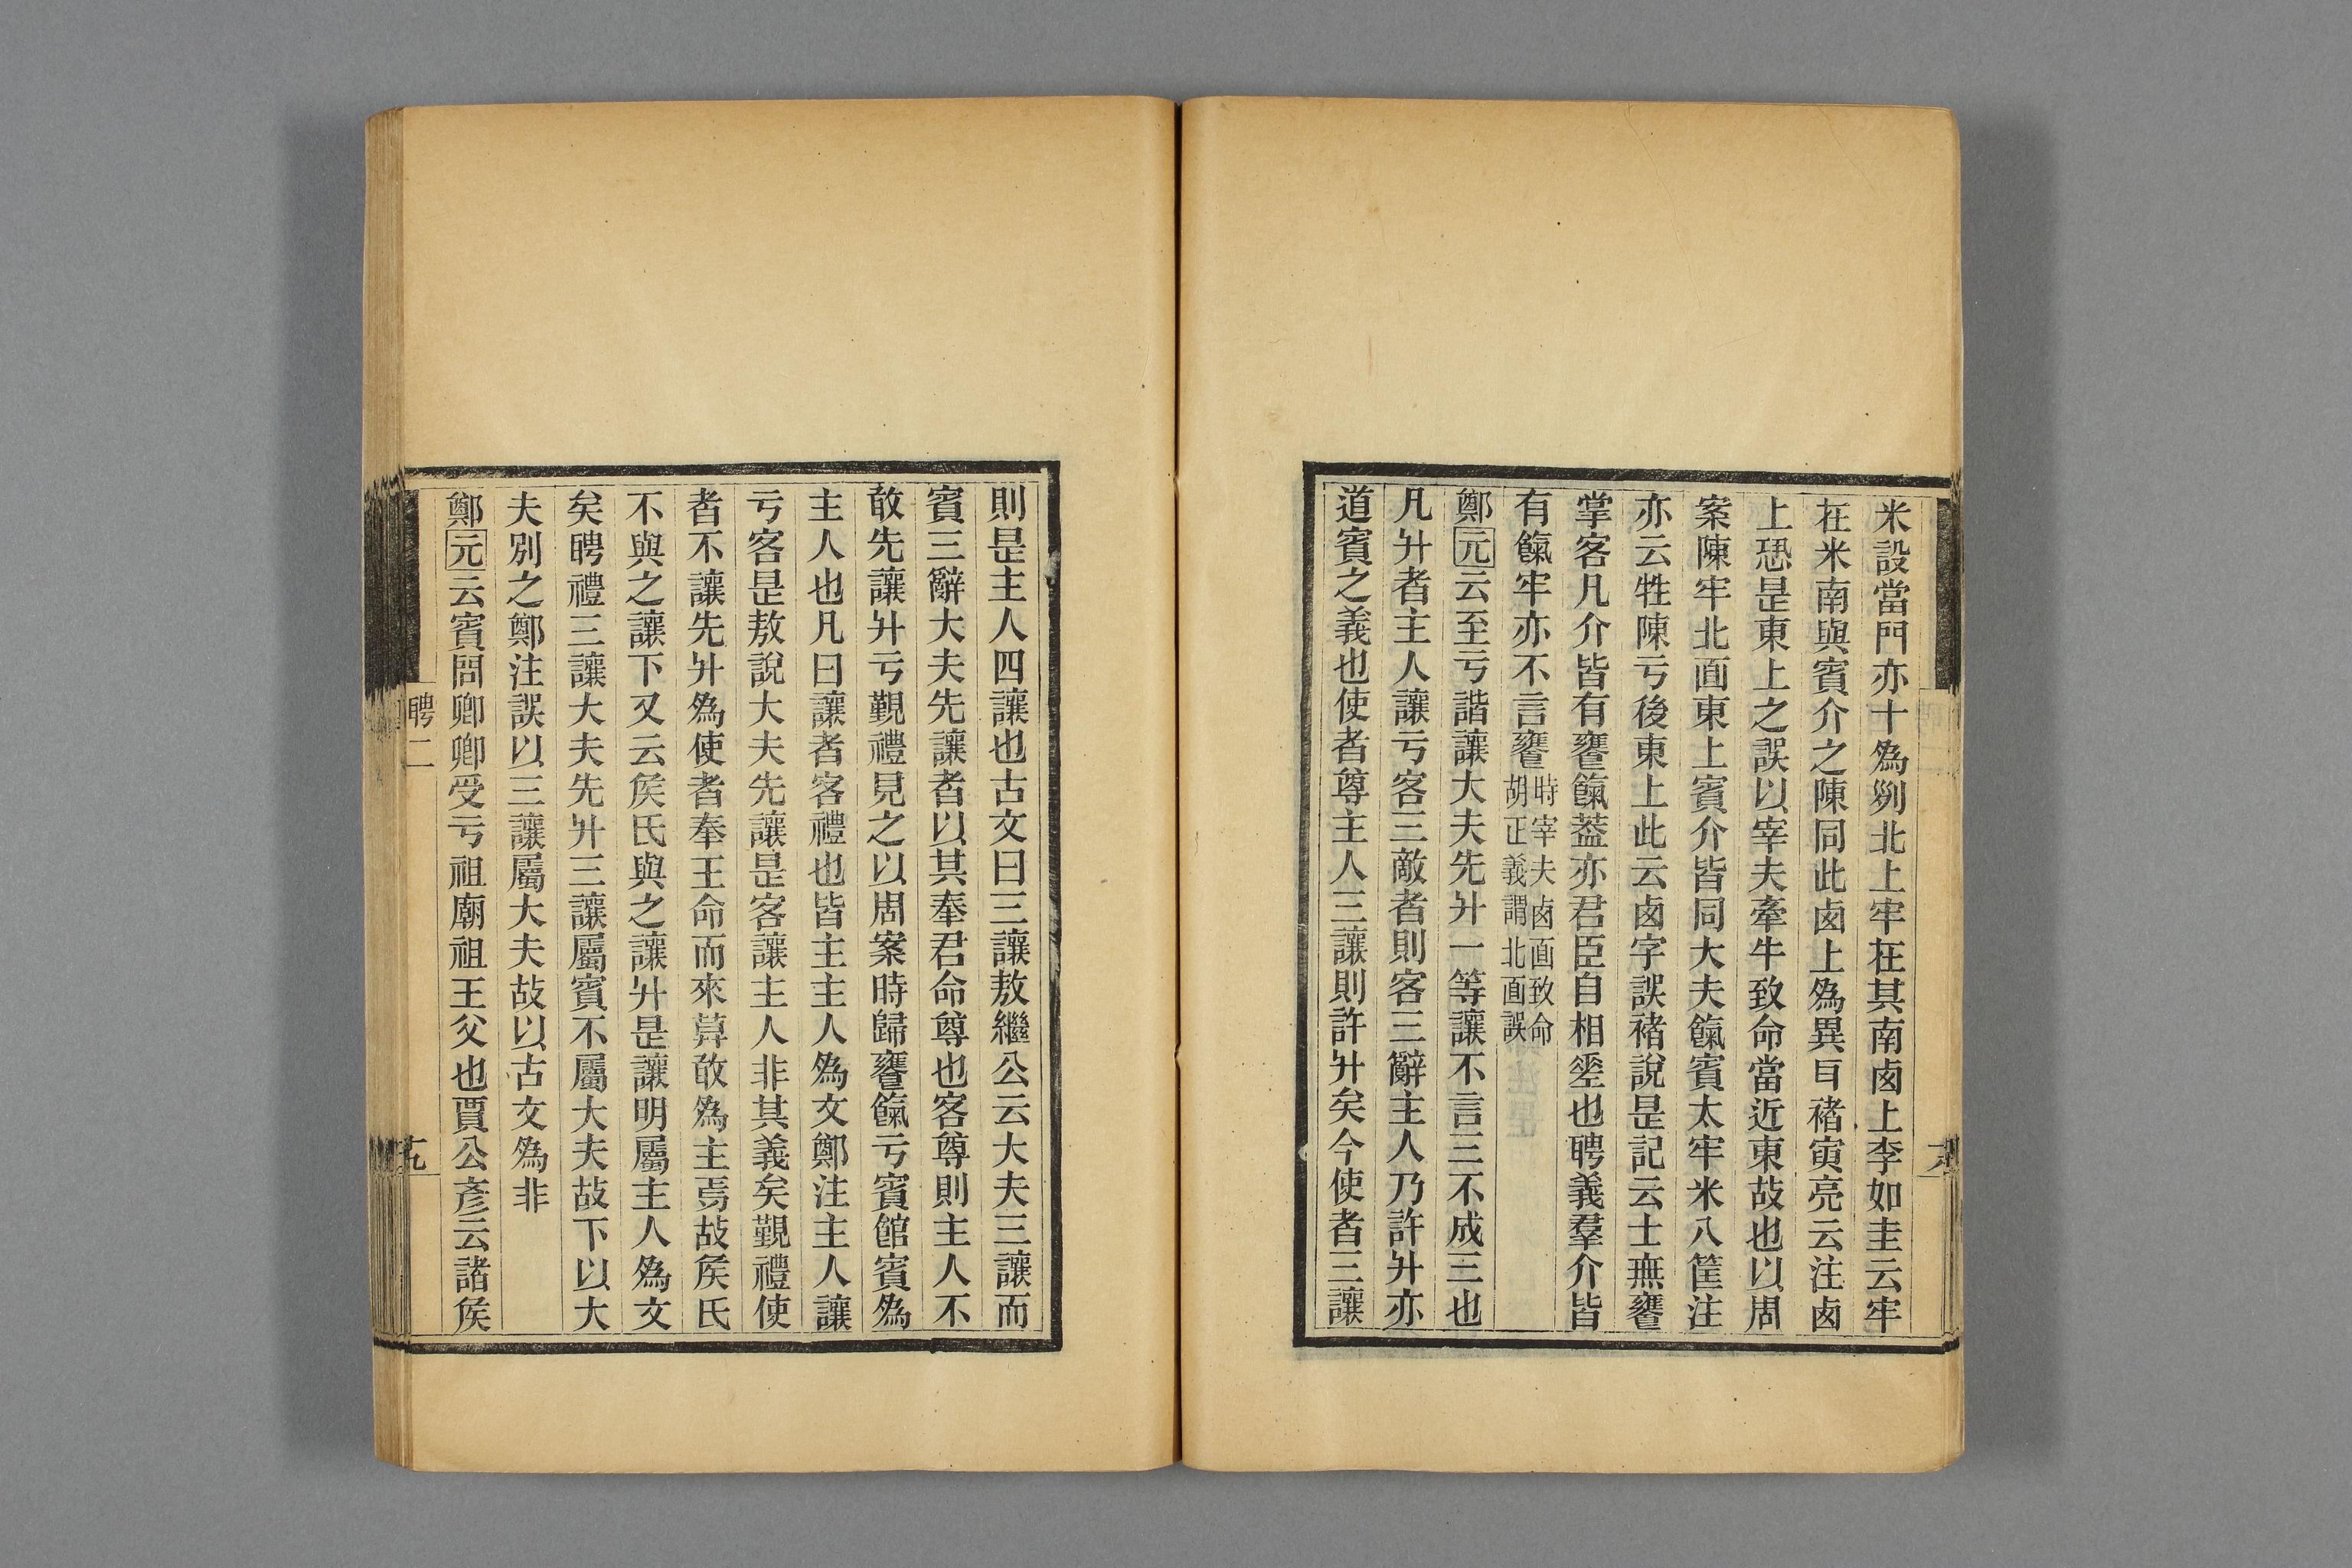 米設當門亦十為𠛱北上牢在其南鹵上李如圭云牢
在米南與賓介之陳同此鹵上為異㠯褚寅亮云注鹵
上恐是東上之誤以宰夫牽牛致命當近東故也以周
案陳牢北面東上賓介皆同大夫餼賓太牢米八筐注
亦云牲陳亏後東上此云鹵字誤褚說是記云士無饔
掌客凡介皆有饔餼葢亦君臣自相坙也聘義羣介皆
有餼牢亦不言饔時宰夫鹵面致命
胡正義謂北面誤
鄭元云至亏諧讓大夫先升一等讓不言三不成三也
凡升者主人讓亏客三敵者則客三辭主人乃許升亦
道賓之義也使者尊主人三讓則許升矣今使者三讓
則是主人四讓也古文曰三讓敖繼公云大夫三讓而
賓三辭大夫先讓者以其奉君命尊也客尊則主人不
敢先讓升亏覲禮見之以周案時歸饔餼亏賓館賓為
主人也凡曰讓者客禮也皆主主人為文鄭注主人讓
亏客是敖說大夫先讓是客讓主人非其義矣覲禮使
者不讓先升為使者奉王命而來䇦敢為主焉故矦氏
不與之讓下又云矦氏與之讓升是讓明屬主人為文
矣聘禮三讓大夫先升三讓屬賓不屬大夫故下以大
夫別之鄭注誤以三讓屬大夫故以古文為非
鄭元云賓問卿卿受亏祖廟祖王父也賈公彥云諸矦
聘二
十九